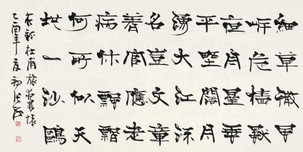 細草微風
岸危檣獨
夜舟星垂
平野闊月
湧大江流
名豈文章
著官應老
病休飄飄
何所似天
地一沙鷗
杜甫旅夜書懷
乙酉年夏